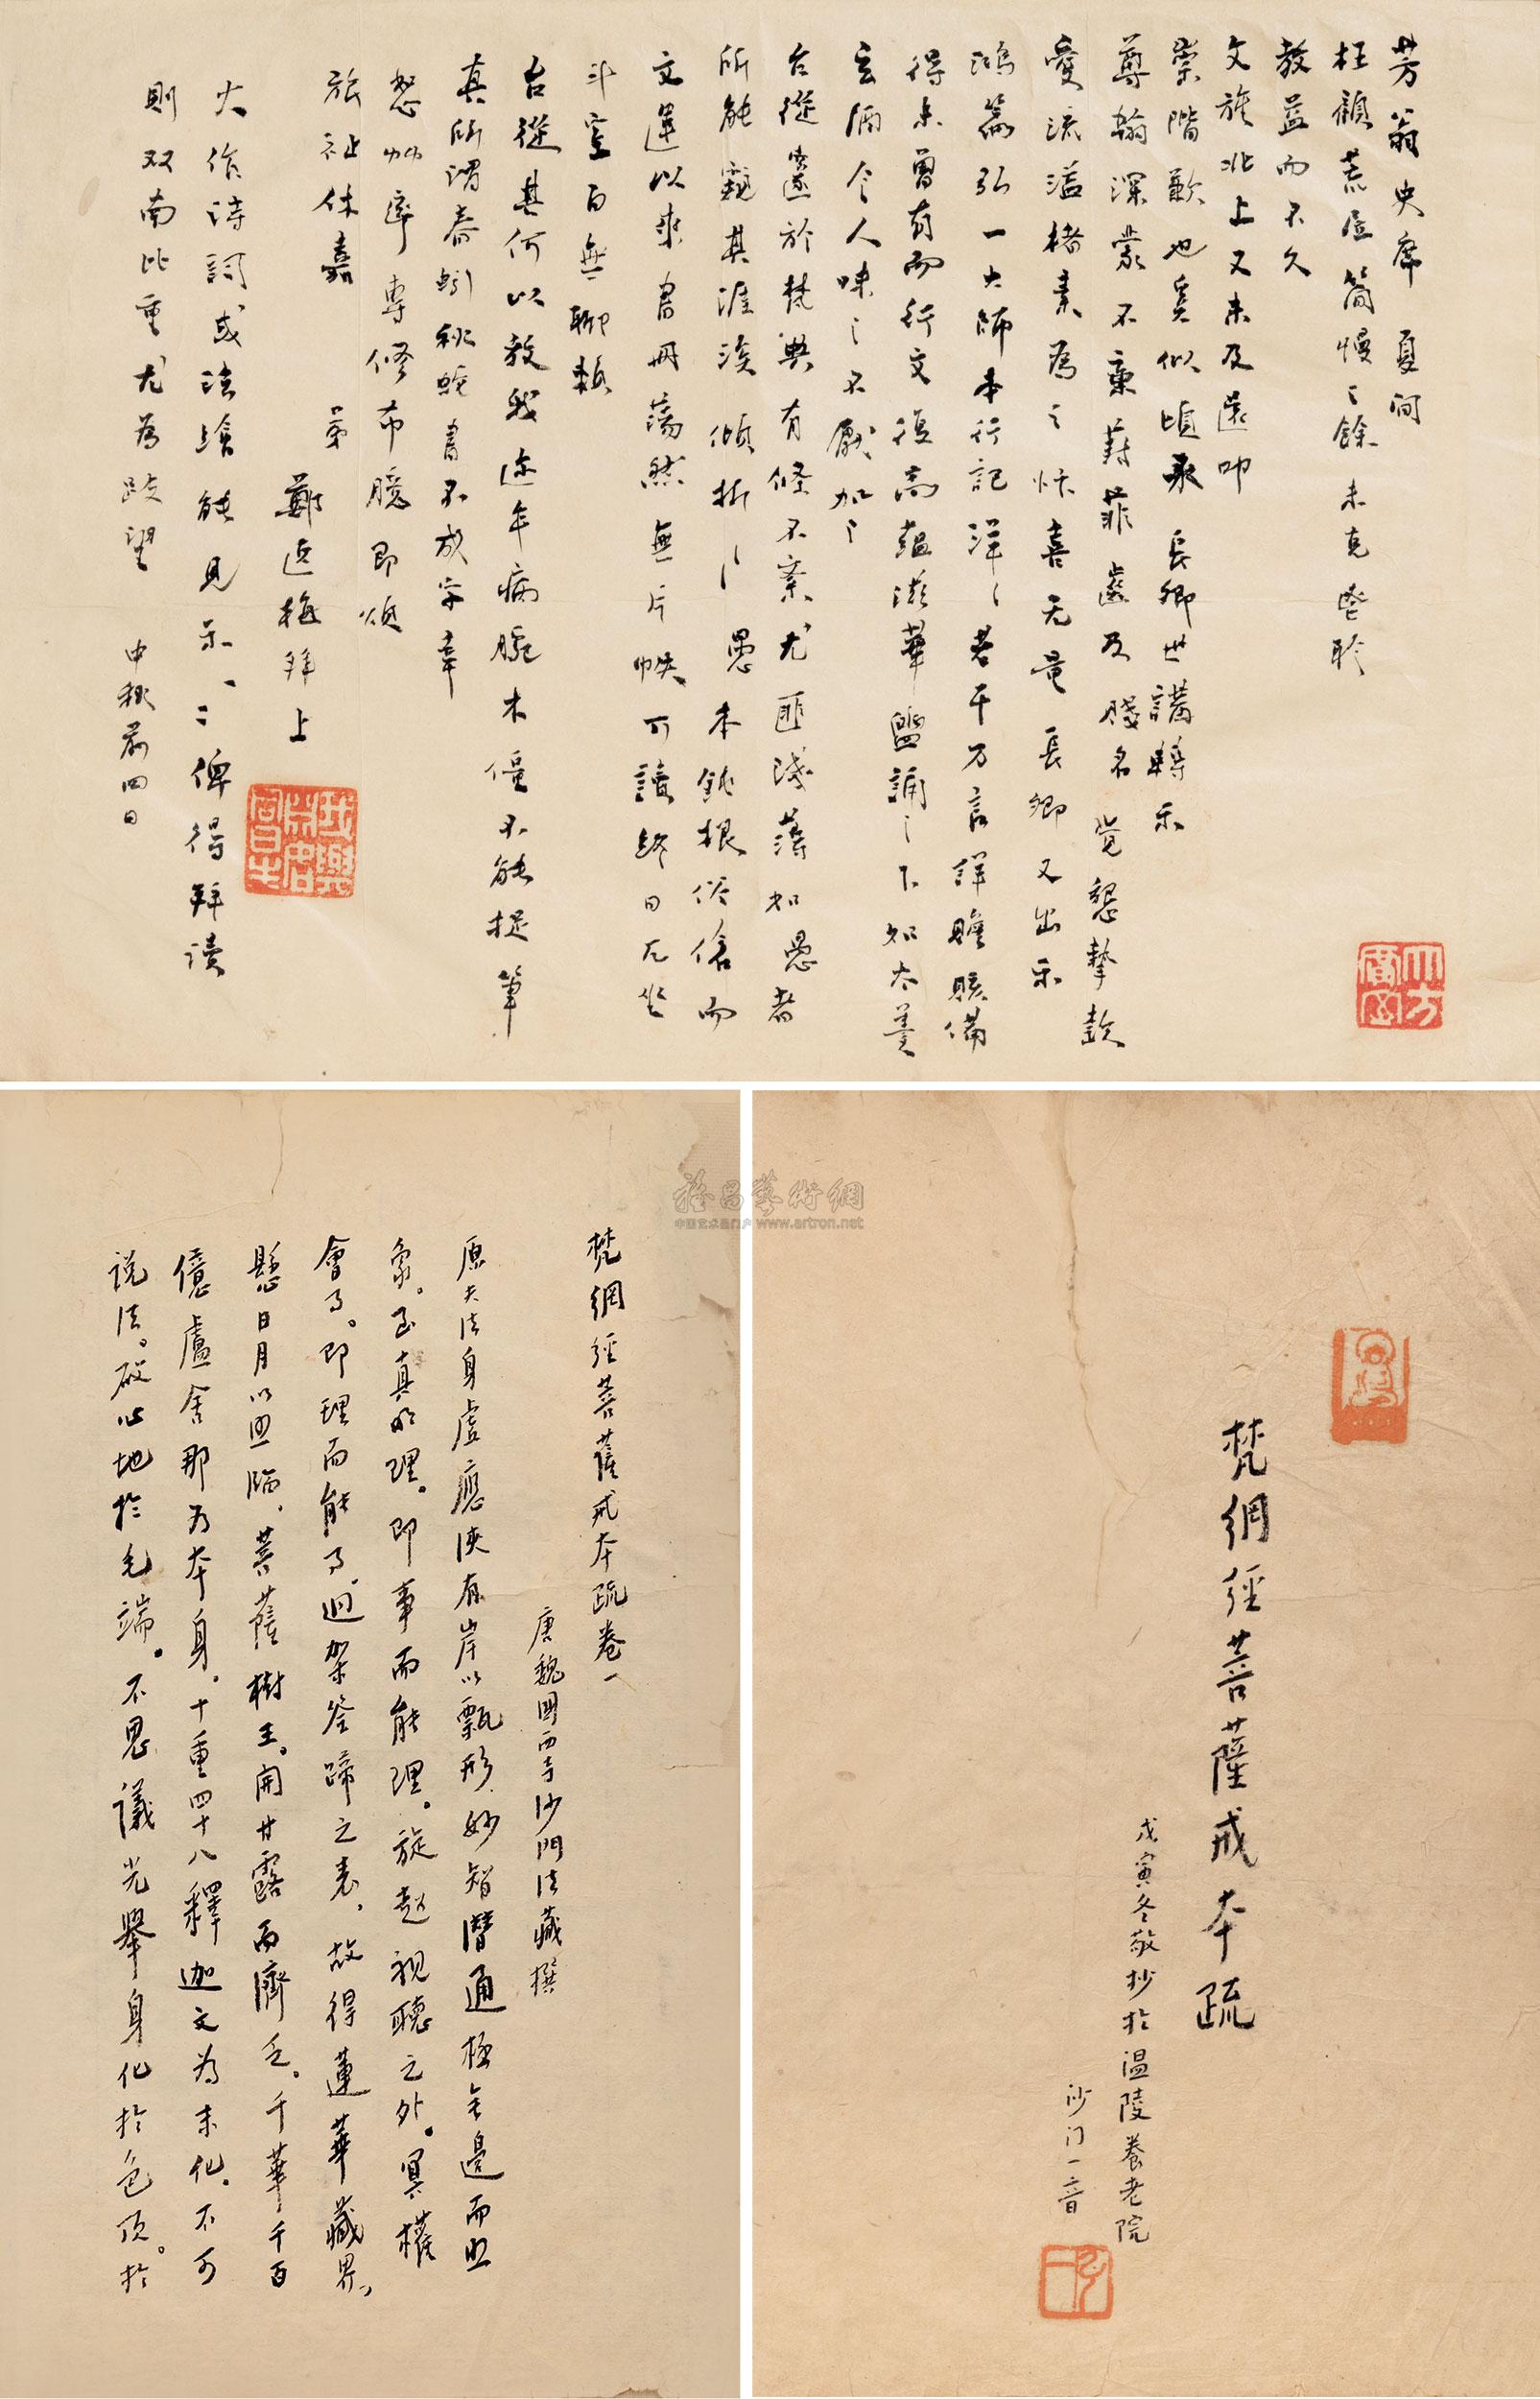 芳翁史席 夏间
枉顧荒居簡慢之餘未克暢聆
教益而不久
文旌北上又未及送叩
崇階歉也奚似頃承長卿世講轉示
尊翰深蒙不棄葑菲齒及賤名覺懇摯款
愛流溢楮素爲之忭喜无量長卿又出示
鴻篇弘一大師本行記洋洋若干万言詳贍賅備
得未曾有而行文復高蘊瀓華盥誦之下如太羹
玄酒令人味之不厭加之
台從邃於梵典有條不紊尤匪淺薄如愚者
所能窺其涯涘傾折之愚本鈍根俗傖而
文運以來書冊蕩然無片帙可讀終日兀坐
斗室百無聊賴
台從其何以教我近年病腕木僵不能捉筆
真所谓春蚓秋蛇書不成字幸
恕艸率專修布臆即頌
旅祉休嘉
弟 鄭逸梅拜上
中秋前四日
大作诗詞或法繪能見示一二俾得拜读
則双南比重尤爲跂望
梵網經菩薩戒本疏
戊寅冬敬抄於温陵養老院
沙门一音
梵網經菩薩戒本疏卷一
唐魏國西寺沙門法藏撰
原夫法身虛應俠有岸以甄形妙智潛通極無邊而出
象。至真明理。即事而能理。旋起視聽之外。冥權
會了。即理而能了迥架筌蹄之表。故得蓮華藏界、
懸日月以照臨。菩薩樹王。開甘露而濟乏。千華千百
億盧舍那为本身。十重四十八釋迦文為末化。不可
说法。啟心地於毛端。不思議光舉身化於色顶。於
雅昌藝術網
中国艺术品门户 www.artron.net